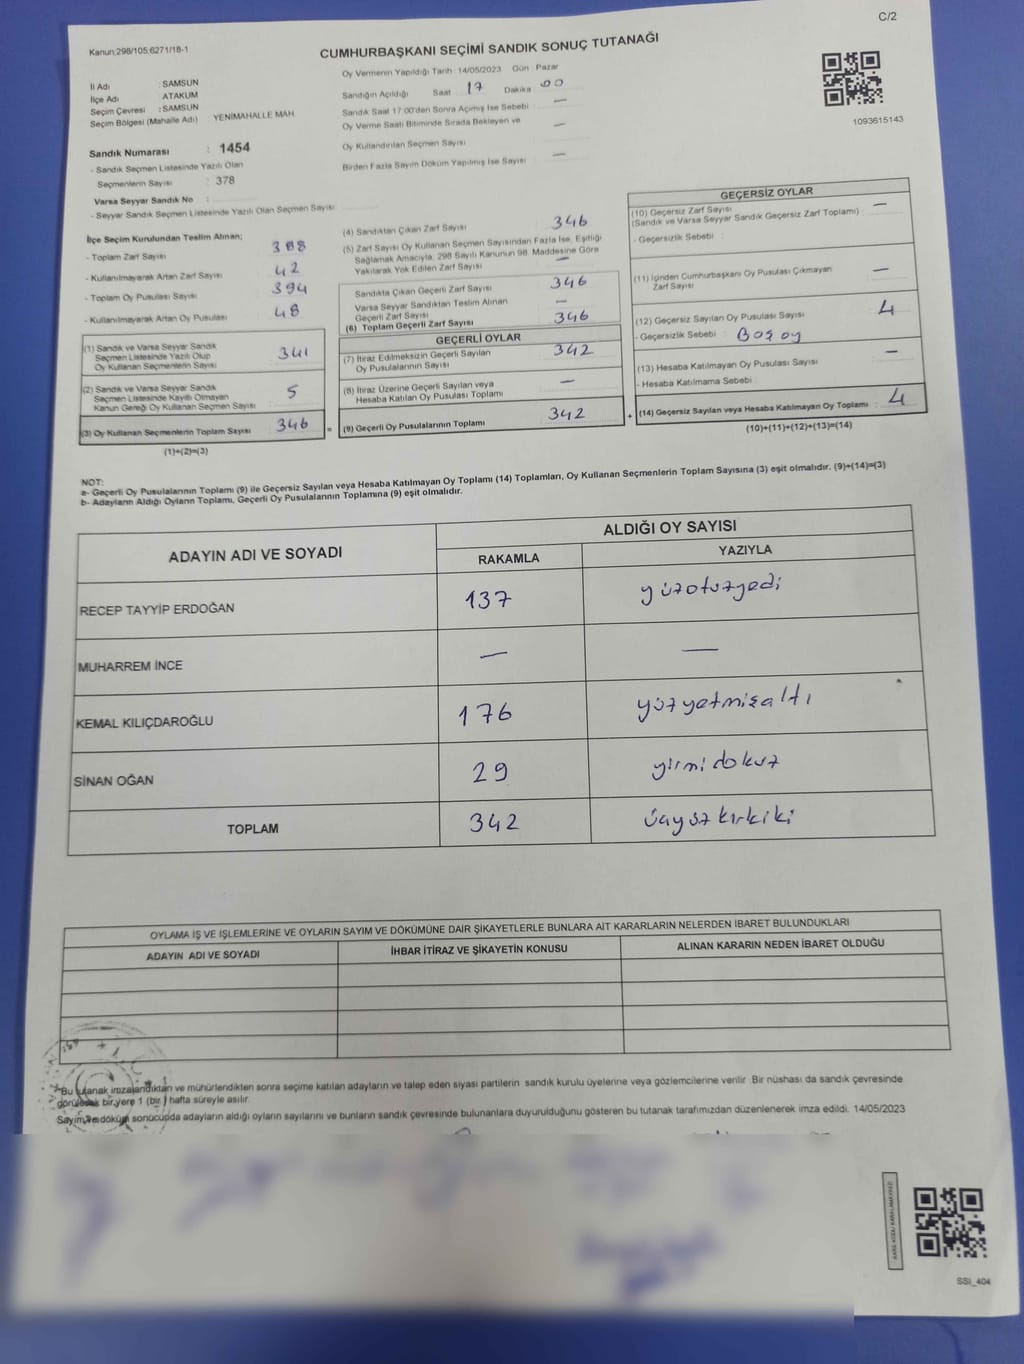 C/2
Kanun;298/105;6271/18-1
CUMHURBAŞKANI SEÇİMİ SANDIK SONUÇ TUTANAĞI
Oy Vermenin Yapıldığı Tarih : 14/05/2023 Gün : Pazar
İl Adı : SAMSUN
İlçe Adı : ATAKUM
Seçim Çevresi : SAMSUN
Seçim Bölgesi (Mahalle Adı) : YENİMAHALLE MAH.
Sandığın Açıldığı Saat 17 Dakika 00
Sandık Saat 17:00'den Sonra Açılmış İse Sebebi —
Oy Verme Saati Bitiminde Sırada Bekleyen ve
Oy Kullandırılan Seçmen Sayısı —
Birden Fazla Sayım Döküm Yapılmış İse Sayısı —
1093615143
Sandık Numarası : 1454
- Sandık Seçmen Listesinde Yazılı Olan
Seçmenlerin Sayısı : 378
Varsa Seyyar Sandık No :
- Seyyar Sandık Seçmen Listesinde Yazılı Olan Seçmen Sayısı
İlçe Seçim Kurulundan Teslim Alınan;
- Toplam Zarf Sayısı 388
- Kullanılmayarak Artan Zarf Sayısı 42
- Toplam Oy Pusulası Sayısı 394
- Kullanılmayarak Artan Oy Pusulası 48
(1) Sandık ve Varsa Seyyar Sandık
Seçmen Listesinde Yazılı Olup
Oy Kullanan Seçmenlerin Sayısı 341
(2) Sandık ve Varsa Seyyar Sandık
Seçmen Listesinde Kayıtlı Olmayan
Kanun Gereği Oy Kullanan Seçmen Sayısı 5
(3) Oy Kullanan Seçmenlerin Toplam Sayısı 346
(1)+(2)=(3)
(4) Sandıktan Çıkan Zarf Sayısı 346
(5) Zarf Sayısı Oy Kullanan Seçmen Sayısından Fazla İse, Eşitliği
Sağlamak Amacıyla, 298 Sayılı Kanunun 98. Maddesine Göre
Yakılarak Yok Edilen Zarf Sayısı —
Sandıkta Çıkan Geçerli Zarf Sayısı 346
Varsa Seyyar Sandıktan Teslim Alınan
Geçerli Zarf Sayısı —
(6) Toplam Geçerli Zarf Sayısı 346
GEÇERLİ OYLAR
(7) İtiraz Edilmeksizin Geçerli Sayılan
Oy Pusulalarının Sayısı 342
(8) İtiraz Üzerine Geçerli Sayılan veya
Hesaba Katılan Oy Pusulası Toplamı —
= (9) Geçerli Oy Pusulalarının Toplamı 342
GEÇERSİZ OYLAR
(10) Geçersiz Zarf Sayısı —
(Sandık ve Varsa Seyyar Sandık Geçersiz Zarf Toplamı)
- Geçersizlik Sebebi :
(11) İçinden Cumhurbaşkanı Oy Pusulası Çıkmayan
Zarf Sayısı —
(12) Geçersiz Sayılan Oy Pusulası Sayısı 4
- Geçersizlik Sebebi : Boş oy
(13) Hesaba Katılmayan Oy Pusulası Sayısı —
- Hesaba Katılmama Sebebi :
+ (14) Geçersiz Sayılan veya Hesaba Katılmayan Oy Toplamı : 4
(10)+(11)+(12)+(13)=(14)
NOT:
a- Geçerli Oy Pusulalarının Toplamı (9) ile Geçersiz Sayılan veya Hesaba Katılmayan Oy Toplamı (14) Toplamları, Oy Kullanan Seçmenlerin Toplam Sayısına (3) eşit olmalıdır. (9)+(14)=(3)
b- Adayların Aldığı Oyların Toplamı, Geçerli Oy Pusulalarının Toplamına (9) eşit olmalıdır.
ADAYIN ADI VE SOYADI
ALDIĞI OY SAYISI
RAKAMLA YAZIYLA
RECEP TAYYİP ERDOĞAN 137 yüzotuzyedi
MUHARREM İNCE — —
KEMAL KILIÇDAROĞLU 176 yüzyetmişaltı
SİNAN OĞAN 29 yirmidokuz
TOPLAM 342 üçyüzkırkiki
OYLAMA İŞ VE İŞLEMLERİNE VE OYLARIN SAYIM VE DÖKÜMÜNE DAİR ŞİKAYETLERLE BUNLARA AİT KARARLARIN NELERDEN İBARET BULUNDUKLARI
ADAYIN ADI VE SOYADI İHBAR İTİRAZ VE ŞİKAYETİN KONUSU ALINAN KARARIN NEDEN İBARET OLDUĞU
*Bu tutanak imzalandıktan ve mühürlendikten sonra seçime katılan adayların ve talep eden siyasi partilerin sandık kurulu üyelerine veya gözlemcilerine verilir .Bir nüshası da sandık çevresinde
görülecek bir yere 1 (bir ) hafta süreyle asılır.
Sayım ve döküm sonucunda adayların aldığı oyların sayılarını ve bunların sandık çevresinde bulunanlara duyurulduğunu gösteren bu tutanak tarafımızdan düzenlenerek imza edildi. 14/05/2023
SSI_404